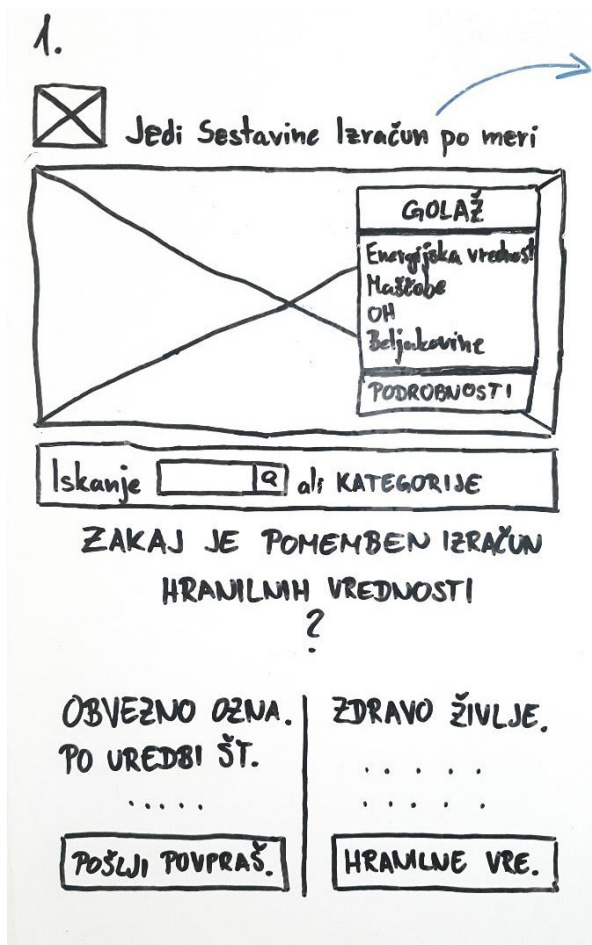 1.
Jedi Sestavine Izračun po meri
GOLAŽ
Energijska vrednost
Maščobe
OH
Beljakovine
PODROBNOSTI
Iskanje ali KATEGORIJE
ZAKAJ JE POMEMBEN IZRAČUN
HRANILNIH VREDNOSTI
?
OBVEZNO OZNA.
PO UREDBI ŠT.
.....
POŠLJI POVPRAŠ.
ZDRAVO ŽIVLJE.
.....
.....
HRANILNE VRE.